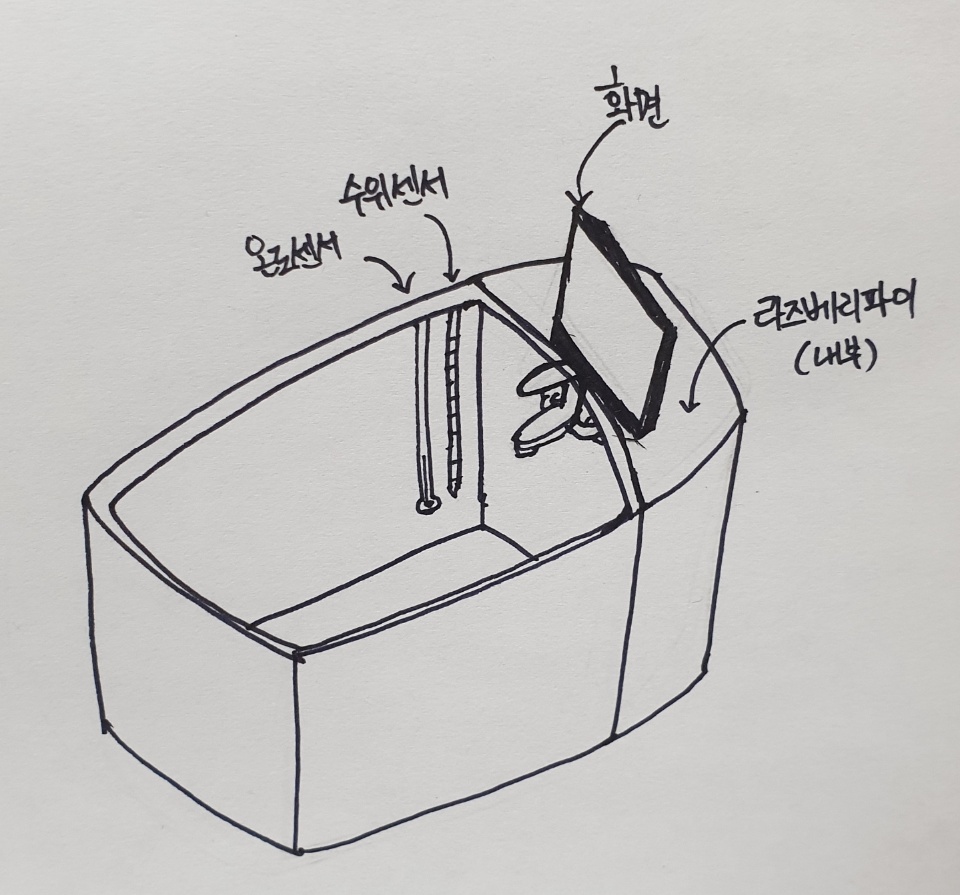 화면
수위센서
온도센서
라즈베리파이
(내부)